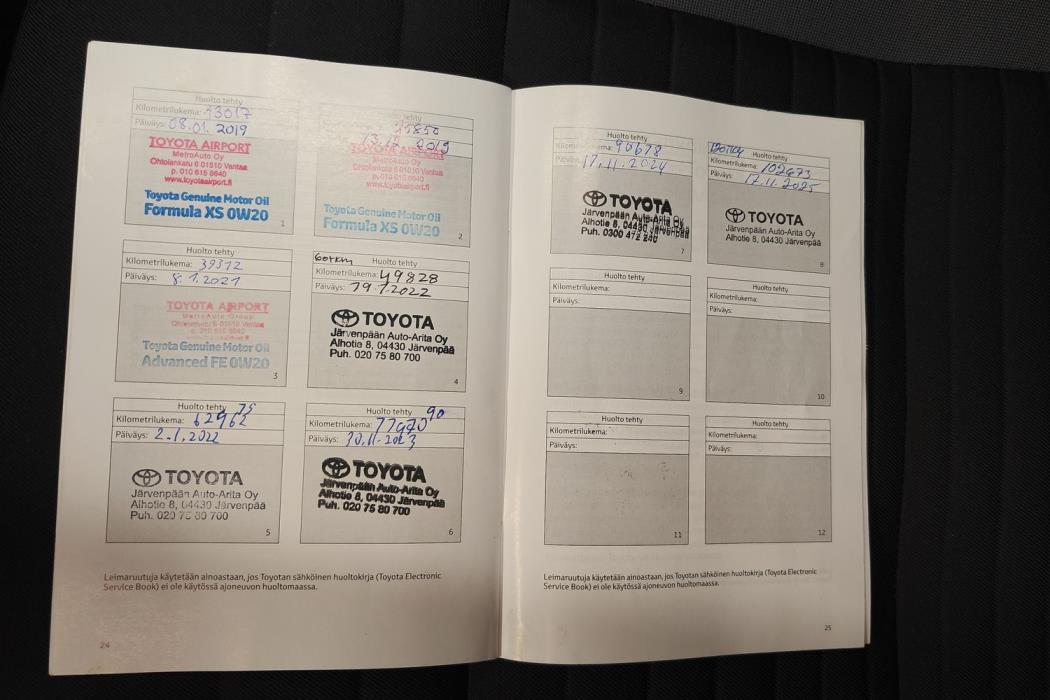 Huolto tehty
Kilometrilukema: 13017
Päiväys: 08.01.2019
TOYOTA AIRPORT
MetroAuto Oy
Ohtolankatu 6 01510 Vantaa
p. 010 615 8640
www.toyotaairport.fi
Toyota Genuine Motor Oil
Formula XS 0W20
1
tehty
2019
TOYOTA AIRPORT
MetroAuto Oy
Ohtolankatu 6 01510 Vantaa
p. 010 615 8640
www.toyotaairport.fi
Toyota Genuine Motor Oil
Formula XS 0W20
2
Huolto tehty
Kilometrilukema: 39312
Päiväys: 8.1.2021
TOYOTA AIRPORT
MetroAuto Group
Ohtolankatu 6 01510 Vantaa
p. 010 615 8640
Toyota Genuine Motor Oil
Advanced FE 0W20
3
60tkm Huolto tehty
Kilometrilukema: 49828
Päiväys: 19.1.2022
TOYOTA
Järvenpään Auto-Arita Oy
Alhotie 8, 04430 Järvenpää
Puh. 020 75 80 700
4
Huolto tehty 75
Kilometrilukema: 62962
Päiväys: 2.1.2022
TOYOTA
Järvenpään Auto-Arita Oy
Alhotie 8, 04430 Järvenpää
Puh. 020 75 80 700
5
Huolto tehty 90
Kilometrilukema: 77970
Päiväys: 30.11.2023
TOYOTA
Järvenpään Auto-Arita Oy
Alhotie 8, 04430 Järvenpää
Puh. 020 75 80 700
6
Leimaruutuja käytetään ainoastaan, jos Toyotan sähköinen huoltokirja (Toyota Electronic
Service Book) ei ole käytössä ajoneuvon huoltomaassa.
24
Huolto tehty
Kilometrilukema: 90678
Päiväys: 17.11.2024
TOYOTA
Järvenpään Auto-Arita Oy
Alhotie 8, 04430 Järvenpää
Puh. 0300 472 240
7
Huolto tehty
Kilometrilukema: 102673
Päiväys: 17.11.2025
TOYOTA
Järvenpään Auto-Arita Oy
Alhotie 8, 04430 Järvenpää
8
Huolto tehty
Kilometrilukema:
Päiväys:
9
Huolto tehty
Kilometrilukema:
Päiväys:
10
Huolto tehty
Kilometrilukema:
Päiväys:
11
Huolto tehty
Kilometrilukema:
Päiväys:
12
Leimaruutuja käytetään ainoastaan, jos Toyotan sähköinen huoltokirja (Toyota Electronic
Service Book) ei ole käytössä ajoneuvon huoltomaassa.
25